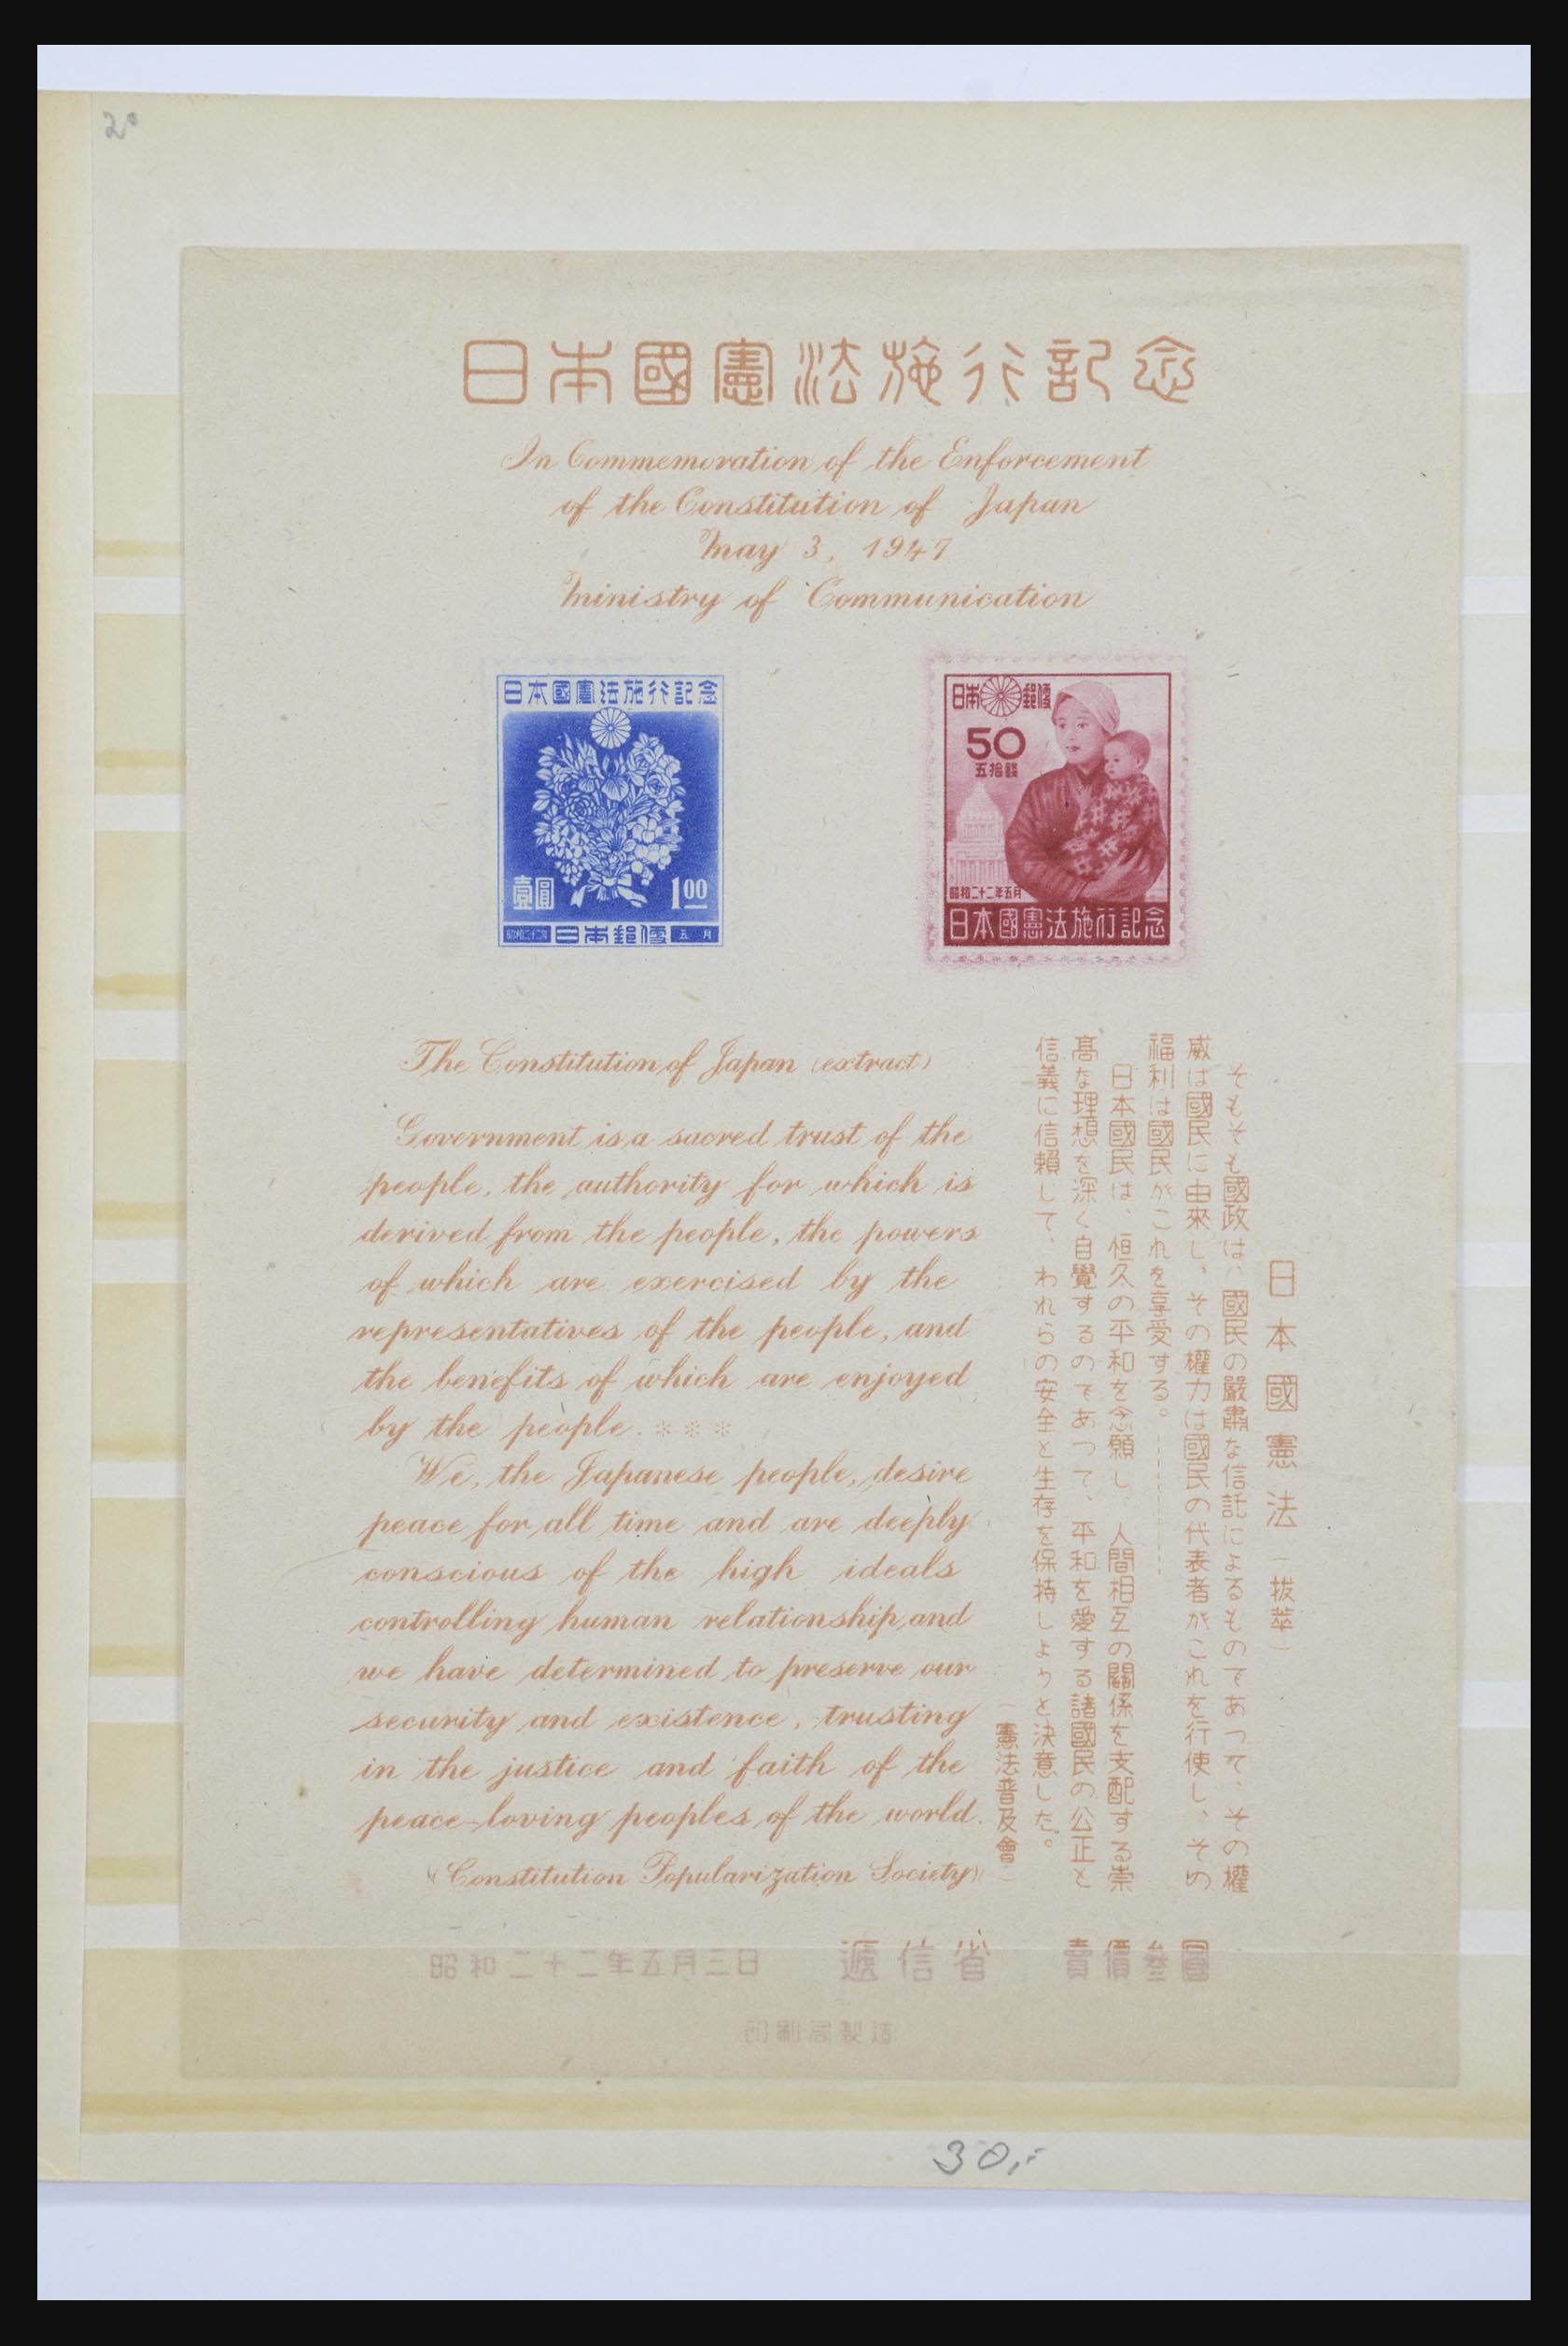 20
日本國憲法施行記念
In Commemoration of the Enforcement
of the Constitution of Japan
May 3, 1947
Ministry of Communication
日本國憲法施行記念
壹圓
1.00
昭和二十二年 日本郵便 五月
日本郵便
50
五拾錢
昭和二十二年五月
日本國憲法施行記念
The Constitution of Japan (extract)
Government is a sacred trust of the
people, the authority for which is
derived from the people, the powers
of which are exercised by the
representatives of the people, and
the benefits of which are enjoyed
by the people. ***
We, the Japanese people, desire
peace for all time and are deeply
conscious of the high ideals
controlling human relationship, and
we have determined to preserve our
security and existence, trusting
in the justice and faith of the
peace-loving peoples of the world.
(Constitution Popularization Society)
日本國憲法（拔萃）
そもそも國政は、國民の嚴肅な信託によるものであつて、その權
威は國民に由來し、その權力は國民の代表者がこれを行使し、その
福利は國民がこれを享受する。……
日本國民は、恒久の平和を念願し、人間相互の關係を支配する崇
高な理想を深く自覺するのであつて、平和を愛する諸國民の公正と
信義に信賴して、われらの安全と生存を保持しようと決意した。
（憲法普及會）
昭和二十二年五月三日 遞信省 賣價參圓
印刷局製造
30,-